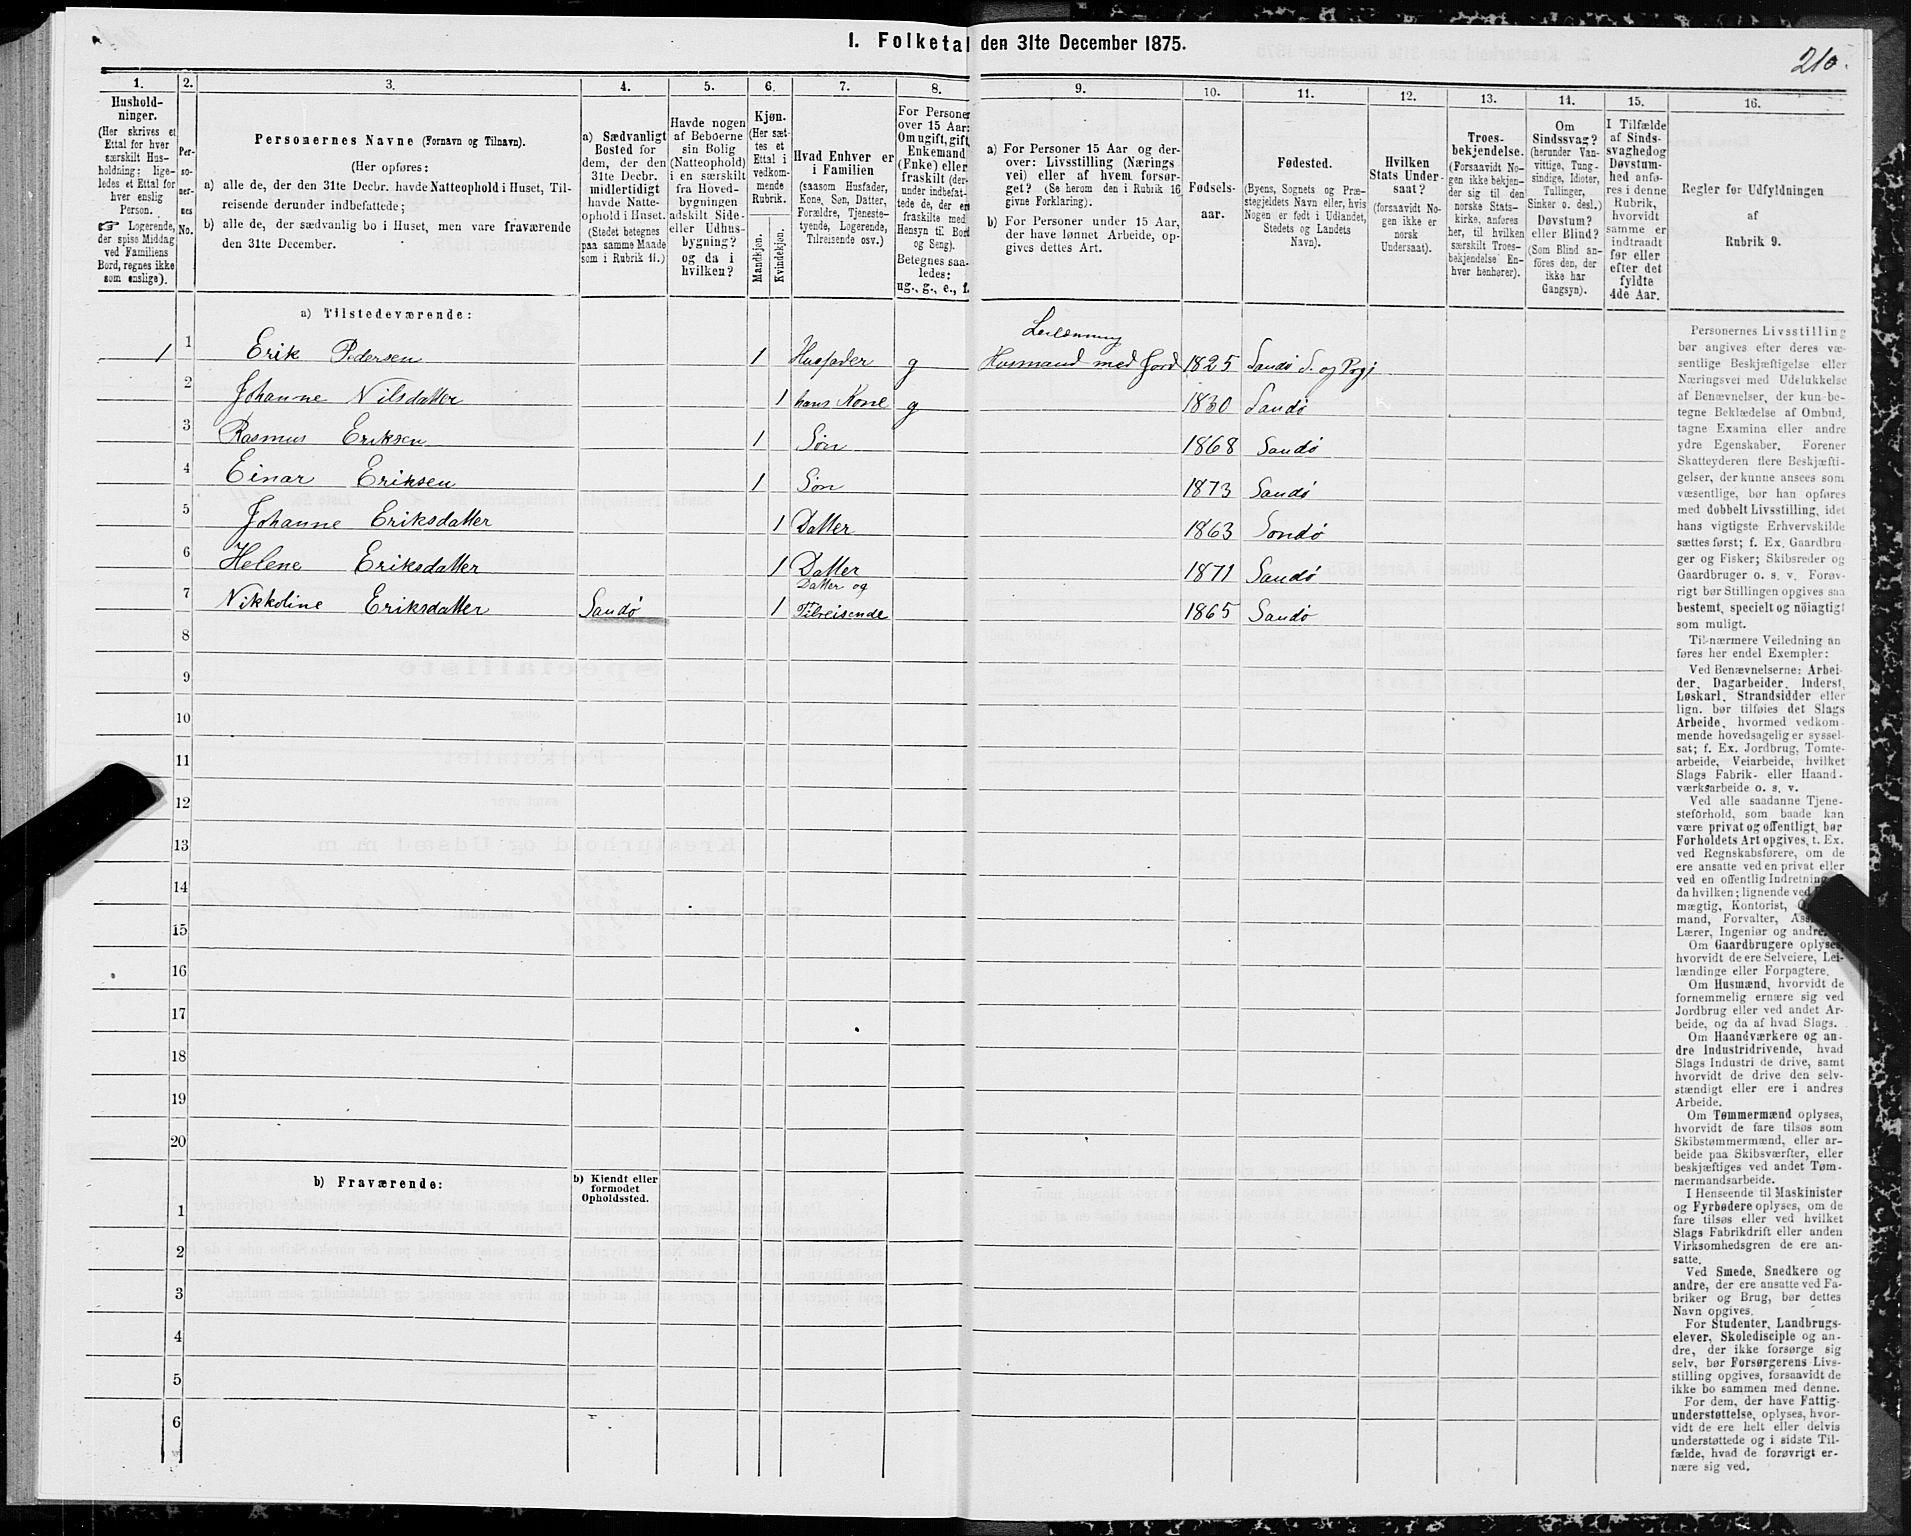 I. Folketal den 31te December 1875.
210.
1.
Hushold-
ninger.
(Her skrives et
Ettal for hver
særskilt Hus-
holdning; lige-
ledes et Ettal for
hver enslig
Person.
☞ Logerende,
der spise Middag
ved Familiens
Bord, regnes ikke
som enslige).
2.
Per-
so-
ner-
nes
No.
3.
Personernes Navne (Fornavn og Tilnavn).
(Her opføres:
a) alle de, der den 31te Decbr. havde Natteophold i Huset, Til-
reisende derunder indbefattede;
b) alle de, der sædvanlig bo i Huset, men vare fraværende
den 31te December.
4.
a) Sædvanligt
Bosted for
dem, der den
31te Decbr.
midlertidigt
havde Natte-
ophold i Huset.
(Stedet betegnes
paa samme Maade
som i Rubrik 11.)
5.
Havde nogen
af Beboerne
sin Bolig
(Natteophold)
i en særskilt
fra Hoved-
bygningen
adskilt Side-
eller Udhus-
bygning?
og da i
hvilken?
6.
Kjøn.
(Her sæt-
tes et
Ettal i
vedkom-
mende
Rubrik.
Mandkjøn.
Kvindekjøn.
7.
Hvad Enhver er
i Familien
(saasom Husfader,
Kone, Søn, Datter,
Forældre, Tjeneste-
tyende, Logerende,
Tilreisende osv.)
8.
For Personer
over 15 Aar:
Om ugift, gift,
Enkemand
(Enke) eller
fraskilt (der-
under indbefat-
tede de, der ere
fraskilte med
Hensyn til Bord
og Seng).
Betegnes saa-
ledes:
ug., g., e., f.
9.
a) For Personer 15 Aar og der-
over: Livsstilling (Nærings
vei) eller af hvem forsør-
get? (Se herom den i Rubrik 16
givne Forklaring).
b) For Personer under 15 Aar,
der have lønnet Arbeide, op-
gives dettes Art.
10.
Fødsels-
aar.
11.
Fødested.
(Byens, Sognets og Præ-
stegjeldets Navn eller, hvis
Nogen er født i Udlandet,
Stedets og Landets
Navn).
12.
Hvilken
Stats Under-
saat?
(forsaavidt No-
gen ikke er
norsk
Undersaat).
13.
Troes-
bekjendelse.
(Forsaavidt No-
gen ikke bekjen-
der sig til den
norske Stats-
kirke, anføres
her, til hvilken
særskilt Troes-
bekjendelse En-
hver henhører).
14.
Om
Sindssvag?
(herunder Van-
vittige, Tung-
sindige, Idioter,
Tullinger,
Sinker o. desl.)
Døvstum?
eller Blind?
(Som Blind an-
føres den, der
ikke har
Gangsyn).
15.
I Tilfælde
af Sinds-
svaghedog
Døvstum-
hed anfø-
res i denne
Rubrik,
hvorvidt
samme er
indtraadt
før eller
efter det
fyldte
4de Aar.
16.
Regler før Udfyldningen
af
Rubrik 9.
a) Tilstedeværende:
1 1 Erik Pedersen 1 Husfader g Leilænning
Husmand med Jord 1825 Sandø S. og Prgj
2 Johanne Nilsdatter 1 hans Kone g 1830 Sandø
3 Rasmus Eriksen 1 Søn 1868 Sandø
4 Einar Eriksen 1 Søn 1873 Sandø
5 Johanne Eriksdatter 1 Datter 1863 Sondø
6 Helene Eriksdatter 1 Datter 1871 Sandø
7 Nikkoline Eriksdatter Sandø 1 Datter og
Tilreisende 1865 Sandø
8
9
10
11
12
13
14
15
16
17
18
19
20
b) Fraværende:
b) Kjendt eller
formodet
Opholdssted.
1
2
3
4
5
6
Personernes Livsstilling
bør angives efter deres væ-
sentlige Beskjæftigelse eller
Næringsvei med Udelukkelse
af Benævnelser, der kun be-
tegne Beklædelse af Ombud,
tagne Examina eller andre
ydre Egenskaber. Forener
Skatteyderen flere Beskjæfti-
gelser, der kunne ansees som
væsentlige, bør han opføres
med dobbelt Livsstilling, idet
hans vigtigste Erhvervskilde
sættes først; f. Ex. Gaardbru-
ger og Fisker; Skibsreder og
Gaardbruger o. s. v. Forøv-
rigt bør Stillingen opgives saa
bestemt, specielt og nöiagtigt
som muligt.
Til nærmere Veiledning an
føres her endel Exempler:
Ved Benævnelserne: Arbei-
der, Dagarbeider, Inderst,
Løskarl, Strandsidder eller
lign. bør tilføies det Slags
Arbeide, hvormed vedkom-
mende hovedsagelig er syssel-
sat; f. Ex. Jordbrug, Tomte-
arbeide, Veiarbeide, hvilket
Slags Fabrik- eller Haand-
værksarbeide o. s. v.
Ved alle saadanne Tjene-
steforhold, som baade kan
være privat og offentligt, bør
Forholdets Art opgives, t. Ex.
ved Regnskabsførere, om de
ere ansatte ved en privat eller
ved en offentlig Indretning
da hvilken; lignende ved
mægtig, Kontorist,
mand, Forvalter,
Lærer, Ingeniør og andre.
Om Gaardbrugere oplyses,
hvorvidt de ere Selveiere, Lei-
lændinge eller Forpagtere.
Om Husmænd, hvorvidt de
fornemmelig ernære sig ved
Jordbrug eller ved andet Ar-
beide, og da af hvad Slags.
Om Haandværkere og an-
dre Industridrivende, hvad
Slags Industri de drive, samt
hvorvidt de drive den selv-
stændigt eller ere i andres
Arbeide.
Om Tømmermænd oplyses,
hvorvidt de fare tilsøs som
Skibstømmermænd, eller ar-
beide paa Skibsværfter, eller
beskjæftiges ved andet Tøm-
mermandsarbeide.
I Henseende til Maskinister
og Fyrbødere oplyses, om de
fare tilsøs eller ved hvilket
Slags Fabrikdrift eller anden
Virksomhedsgren de ere an-
satte.
Ved Smede, Snedkere og
andre, der ere ansatte ved Fa-
briker og Brug, bør dettes
Navn opgives.
For Studenter, Landbrugs-
elever, Skoledisciple og an-
dre, der ikke forsørge sig
selv, bør Forsørgerens Livs-
stilling opgives, forsaavidt de
ikke bo sammen med denne.
For dem, der have Fattig-
understøttelse, oplyses, hvor-
vidt de ere helt eller delvis
understøttede og i sidste Til-
fælde, hvad de forøvrigt er-
nære sig ved.